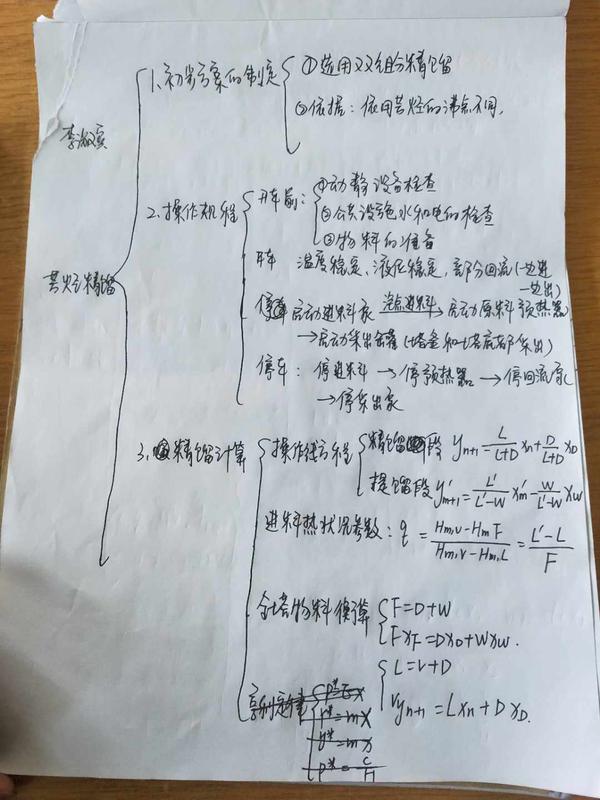 1、初步方案的制定
①选用双组分精馏
②依据：依用芳烃的沸点不同.
芳烃精馏
2、操作规程
开车前：
①动静设备检查
②公共设施水和电的检查
③物料的准备
开车 温度稳定、液位稳定、部分回流(一边进
一边出)
启动进料泵 泡点进料→启动原料预热器
→启动采出(塔釜和塔底部采出)
停车：停进料→停预热器→停回流泵
→停采出泵
3、精馏计算
操作线方程
精馏段 yn+1=L/(L+D) xn+D/(L+D) xD
提馏段 y'm+1=L'/(L'-W) x'm-W/(L'-W) xW
进料热状况参数：q=(Hm,V-Hm,F)/(Hm,V-Hm,L)=(L'-L)/F
全塔物料衡算
F=D+W
FxF=DxD+WxW.
L=V+D
Vyn+1=Lxn+DxD.
亨利定律
y*=mx
p*=c/H